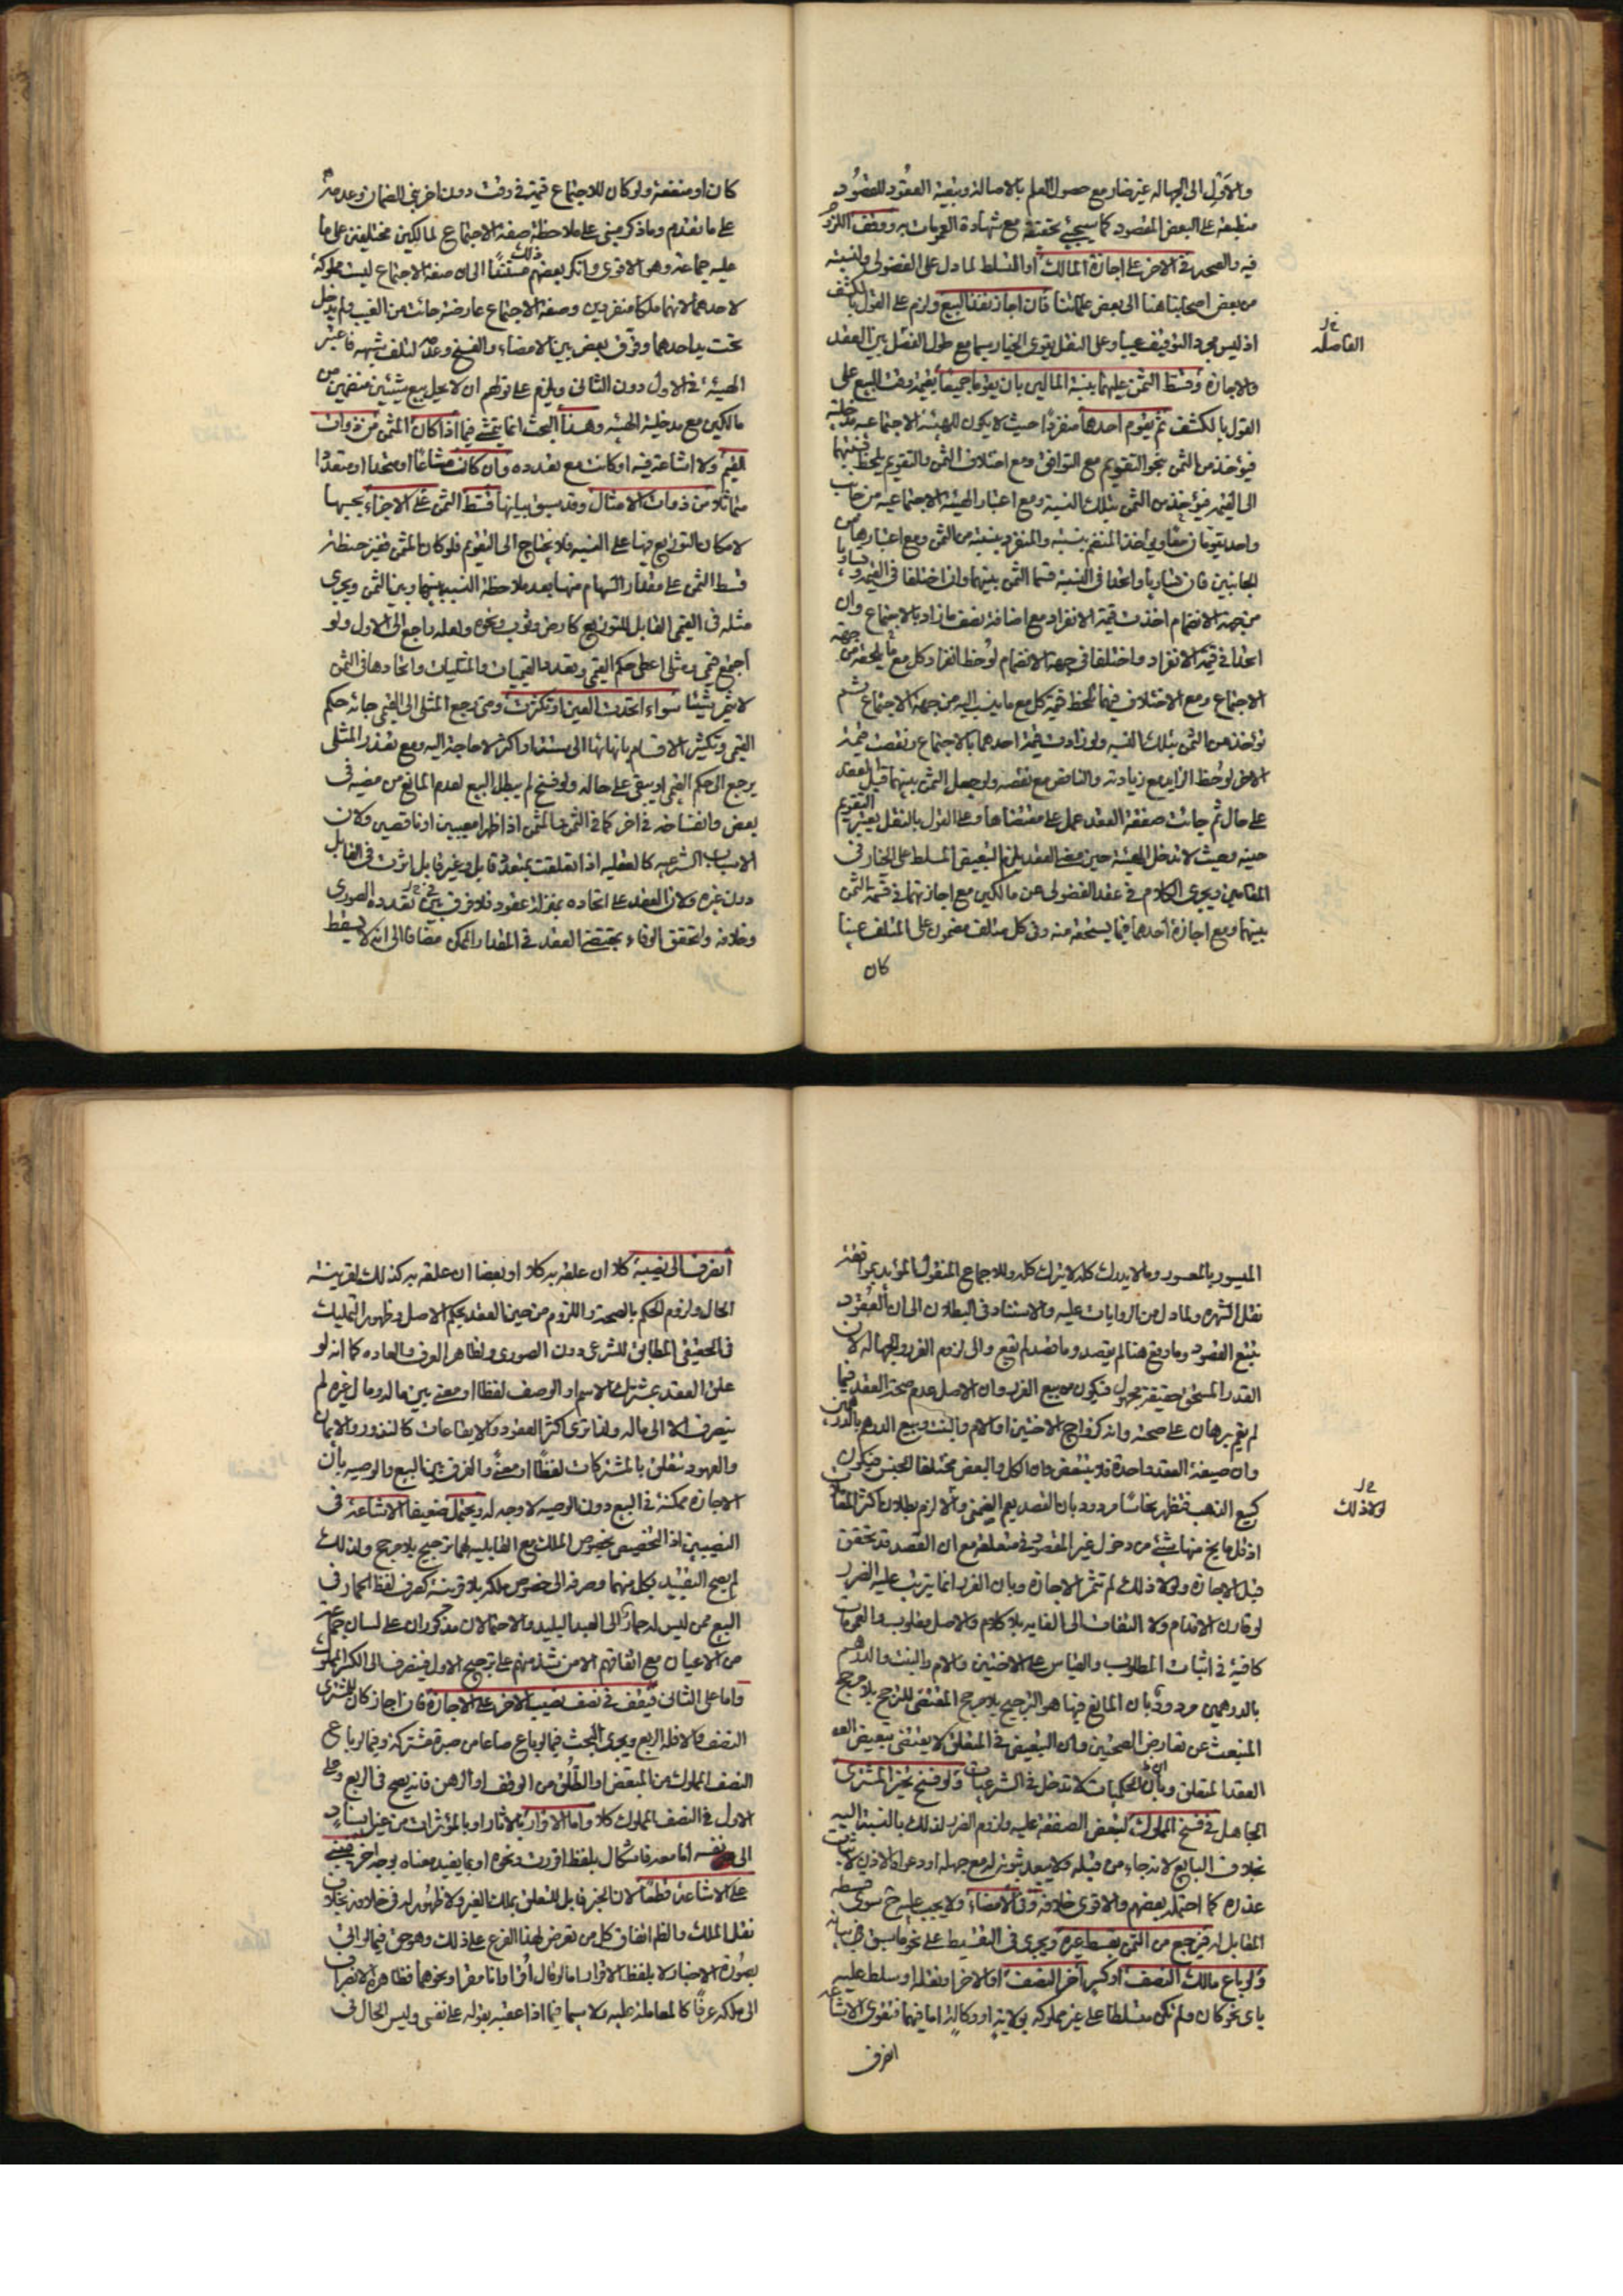 والاول الى الجهالة غير ضار مع حصول العلم بالاصالة وتبعية العقود للقصود
منطبقة على البعض المقصود كما سيجئ تحقيقه مع شهادة العمومات به ووقف اللزوم
فيه والصحة في الاخر على اجازة المالك او المسلط لما دل على الفضولى ولنسبته
من بعض اصحابنا هنا الى بعض علمائنا فان اجاز نفذ البيع ولزم على القول بالكشف
اذ ليس مجرد التوقيف عيبا وعلى النقل يقوى الخيار سيما مع طول الفصل بين العقد
الفاصله
والاجازة وقسط الثمن عليهما بنسبة المالين بان يقوما جميعا بقيمة وقت البيع على
القول بالكشف ثم يقوم احدهما منفردا حيث لا يكون للهيئة الاجتماعيه مدخلية
فيؤخذ من الثمن بنحو التقويم مع التوافق ومع اختلاف الثمن والتقويم يلحظ نسبتهما
الى القيمة فيؤخذ من الثمن بتلك النسبة ومع اعتبار الهيئة الاجتماعية من جانب
واحد يقومان معا ويؤخذ المنضم بنسبته والمنفرد بنسبته من الثمن ومع اعتبارها من
الجانبين فان تساويا واتحدا في النسبة قسما الثمن بينهما وان اختلفا في القيمة وتساويا
من جهة الانضمام اخذت قيمة الانفراد مع اضافة نصف ما زاد بالاجتماع وان
اتحدا في قيمة الانفراد واختلفا في جهة الانضمام لوحظ انفراد كل مع ما يلحقه من جهة
الاجتماع ومع الاختلاف فيهما تلحظ قيمة كل مع ما ينسب اليه من جهة الاجتماع ثم
تؤخذ من الثمن بتلك النسبه ولو زادت قيمة احدهما بالاجتماع ونقصت قيمة
الاخر لوحظ الزايد مع زيادته والناقص مع نقصه ولو جعل الثمن بينهما قبل العقد
على حال ثم جائت صفقة العقد عمل على مقتضاها وعلى القول بالنقل يعتبر التقويم
حينه وحيث لا تدخل الهيئة حين العقد يلزم التبعيض المسلط على الخيار في
المقامين ويجرى الكلام في عقد الفضولى عن مالكين مع اجازتهما في قسمة الثمن
بينهما ومع اجازة احدهما فيما يستحقه منه وفى كل متلف مضمون على المتلف عينا
كان
كان او منفعة ولو كان للاجتماع قيمة في وقت دون اخر بنى الضمان وعدمه
على ما تقدم وما ذكر مبنى على ملاحظة صفة الاجتماع لمالكين مختلفين على ما
عليه جماعة وهو الاقوى وانكر بعضهم ذلك مستندا الى ان صفة الاجتماع ليست مملوكة
لاحدهما لانهما ملكا منفردين وصفة الاجتماع عارضة جائت من الغيب ولم يدخل
تحت يد احدهما وفرق بعض بين الامضاء والفسخ وعده لتلف شبهه فاعتبر
الهيئة في الاول دون الثانى ويلزم على قولهم ان لا يحل بيع شيئين منضمين من
مالكين مع مدخلية الهيئه وهذا البحث انما يتمشى فيما اذا كان المثمن من ذوات
القيم ولا اشاعة فيه او كانت مع تعدده وان كانت مشاعا او متحدا او متعددا
متماثلا من ذوات الامثال وقد سبق بيانها قسط الثمن على الاجزاء بحسبها
لامكان التوزيع فيها على النسبه فلا يحتاج الى التقويم فلو كان المثمن قفيز حنطة
قسط الثمن على مقدار السهام منها بعد ملاحظة النسبة بينها وبين الثمن ويجرى
مثله في القيمى القابل للتوزيع كارض وثوب ونحوه ولعله راجع الى الاول ولو
اجتمع قيمى ومثلى اعطى حكم القيمى وتعدد القيميات والمثليات واتحادها في الثمن
لا يثمر شيئا سواء اتحدت العين او تكثرت ومتى رجع المثلى الى القيمى جائه حكم
القيمى وتكثير الاقسام بانهائها الى ستة او اكثر لا حاجة اليه ومع تعذر المثلى
يرجع الى حكم القيمى او يبقى على حاله ولو فسخ لم يبطل البيع لعدم المانع من مضيه في
بعض وانفساخه في اخر كما في الثمن والمثمن اذا ظهرا معيبين او ناقصين وكان
الاسباب الشرعيه كالعقليه اذا تعلقت بمتعدد قابل وغير قابل اثرت في القابل
دون غيره ولان العقد على اتحاده بمنزلة عقود فلا فرق بين تعدده الصورى
وخلافه ولتحقق الوفاء بمقتضى العقد في المقدار الممكن مضافا الى انه لا يسقط
الميسور بالمعسور وما لا يدرك كله لا يترك كله وللاجماع المنقول المؤيد بموافقة
نقل الشهره ولما دل من الروايات عليه والاستناد في البطلان الى ان العقود
تتبع القصود وما وقع هنا لم يقصد وما قصد لم يقع والى لزوم الغرر والجهالة لان
القدر المستحق حقيقة مجهول فيكون من بيع الغرر وان الاصل عدم صحة العقد فيما
لم يقم برهان على صحته وانه كزواج الاختين او الام والبنت وبيع الدرهم بالدرهمين
وان صيغة العقد واحدة فلا يتبعض وان الكل والبعض مختلفا الجنس فيكون
كبيع الذهب فتظهر نحاسا مردود بان القصد يعم الضمنى والا لزم بطلان اكثر المعاملات
اذ قل ما يخ منها شئ من دخول غير المقصود في متعلقه مع ان القصد قد تحقق
لولا ذلك
قبل الاجازة ولولا ذلك لم تثمر الاجازة وبان الغرر انما يترتب عليه الضرر
لو قارن الاقدام ولا التفات الى الغايه بلا كلام والاصل مقلوب والعمومات
كافية في اثبات المطلوب والقياس على الاختين والام والبنت والدرهم
بالدرهمين مردود بان المانع فيها هو الترجيح بلا مرجح المقتضى للترجيح بلا مرجح
المنبعث عن تعارض الصحتين وبان التبعيض في المتعلق لا يقتضى تبعيض العقد
العقد المتعلق وبان الحكميات لا تدخل في الشرعيات ولو فسخ تخير المشترى
الجاهل في فسخ المملوك لتبعض الصفقة عليه ولزوم الضرر لذلك بالنسبة اليه
بخلاف البايع لانه جاء من قبله ولا يبعد ثبوته له مع جهله او دعواه الاذن لاثبات
عذره كما احتمله بعضهم والاقوى خلافه وفى الامضاء ولا يجب عليه ح سوى قسطه
المقابل له فيرجع من الثمن بقسط غيره ويجرى في التقسيط على نحو ما سبق من بيانه
ولو باع مالك النصف او كسر اخر النصف او الاخر او نقله او سلط عليه
باى نحو كان ولم تكن مسلطا على غير مملوكه بولاية او وكالة اما فيهما فتقوى الاشاعه
انصرف
انصرف الى نصيبه كلا ان علقه به كلا او بعضا ان علقه به كذلك لقرينة
الحال ولزوم الحكم بالصحة واللزوم من حين العقد بحكم الاصل وظهور التمليك
في الحقيقى المطابق للشرعى دون الصورى ولظاهر العرف والعاده كما انه لو
علق العقد بمشترك الاسم او الوصف لفظا او معنى بين ماله ومال غيره لم
ينصرف الا الى ماله ولذا ترى اكثر العقود والايقاعات كالنذور والايمان
والعهود تتعلق بالمشتركات لفظا او معنى والفرق بين البيع والوصيه بان
الاجازه ممكنة في البيع دون الوصيه لا وجه له ويحتمل ضعيفا الاشاعة في
النصيبين اذ التخصيص بخصوص الملك مع القابليه لهما ترجيح بلا مرجح ولذلك
لم يصح التقييد بكل منهما وصرفه الى خصوص ملكه بلا قرينة كصرف لفظ الحمار في
البيع ممن ليس له حمار الى العبد البليد والاحتمالان مذكوران على لسان جماعة
من الاعيان مع اتفاقهم الا من شذ منهم على ترجيح الاول فينصرف الى الكسر المملوك
واما على الثانى فيقف في نصف نصيب الاخر على الاجازة فان اجاز كان للمشترى
النصف والا فله الربع ويجرى البحث فيما لو باع صاعا من صبرة مشتركة وفيما لو باع
النصف المملوك من المبعض او الطلق من الوقف او الرهن فانه يصح في الربع وعلى
الاول في النصف المملوك كلا واما الاقرار بالاثار او بالمؤثرات من غير اسناد
الى نفسه اما معه فاشكال بلفظ اقررت ونحوه او بما يفيد معناه بوجه اخر فيبنى
على الاشاعة قطعا لان الخبر قابل للتعلق بملك الغير ولا ظهور له في خلافه بخلاف
نقل الملك والظ اتفاق كل من تعرض لهذا الفرع على ذلك وهو حق فيما لو اتى
بصورة الاخبار لا بلفظ الاقرار اما لو قال اقر او انا مقر او نحوهما فظاهره الانصراف
الى ملكه عرفا كالمعاملة عليه ولا سيما فيما اذا عقبه بقوله على نفسى وليس الحال في